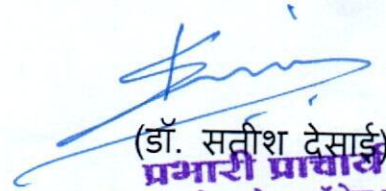 (डॉ. सतीश देसाई)
प्रभारी प्राचार्य